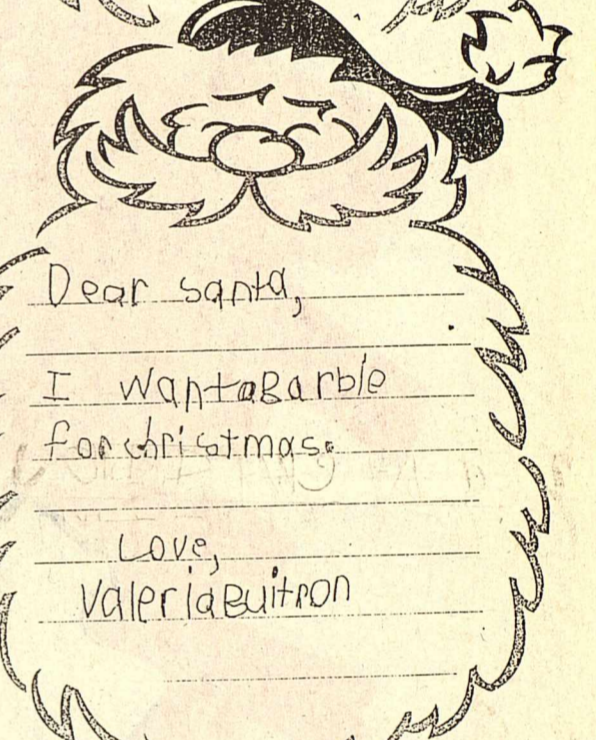 Dear santa,
I wantaBarble
for christmas.
Love,
valeriaBuitron